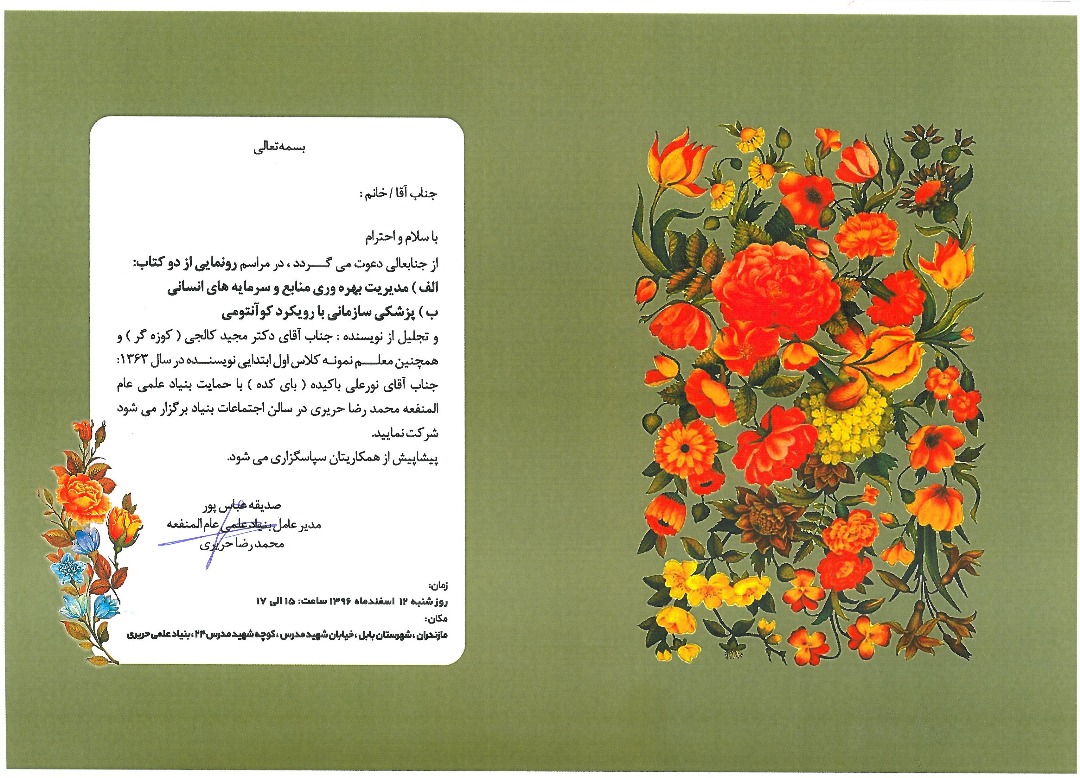 بسمه‌تعالی
جناب آقا / خانم :
با سلام و احترام
از جنابعالی دعوت می گـــردد ، در مراسم رونمایی از دو کتاب:
الف ) مدیریت بهره وری منابع و سرمایه های انسانی
ب ) پزشکی سازمانی با رویکرد کوآنتومی
و تجلیل از نویسنده : جناب آقای دکتر مجید کالجی ( کوزه گر ) و
همچنین معلـــم نمونـه کلاس اول ابتدایی نویسنـــده در سال ۱۳۶۳:
جناب آقای نورعلی باکیده ( بای کده ) با حمایت بنیاد علمی عام
المنفعه محمد رضا حریری در سالن اجتماعات بنیاد برگزار می شود
شرکت نمایید.
پیشاپیش از همکاریتان سپاسگزاری می شود.
صدیقه عباس پور
مدیر عامل بنیاد علمی عام المنفعه
محمدرضا حریری
زمان:
روز شنبه ۱۲ اسفندماه ۱۳۹۶ ساعت: ۱۵ الی ۱۷
مکان:
مازندران ، شهرستان بابل ، خیابان شهید مدرس ، کوچه شهید مدرس ۲۴ ، بنیاد علمی حریری